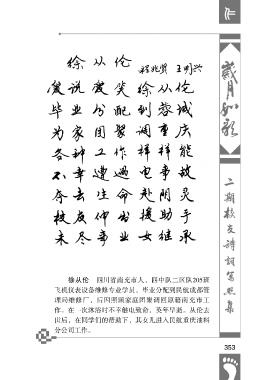 作
岁月如歌
二期校友诗词写照集
徐从伦
程兆贤 王明兴
爱说爱笑徐从伦
毕业分配到蓉城
为家团聚调重庆
各种工作样样能
不幸遭遇电事故
夺去生命赴阴灵
校友伸出援助手
未尽事业女继承
徐从伦 四川省南充市人,四中队二区队205班
飞机仪表设备维修专业学员。毕业分配到民航成都管
理局维修厂,后因照顾家庭团聚调回原籍南充市工
作。在一次沐浴时不幸触电致命,英年早逝。从伦去
世后,在同学们的帮助下,其女儿进入民航重庆油料
分公司工作。
353